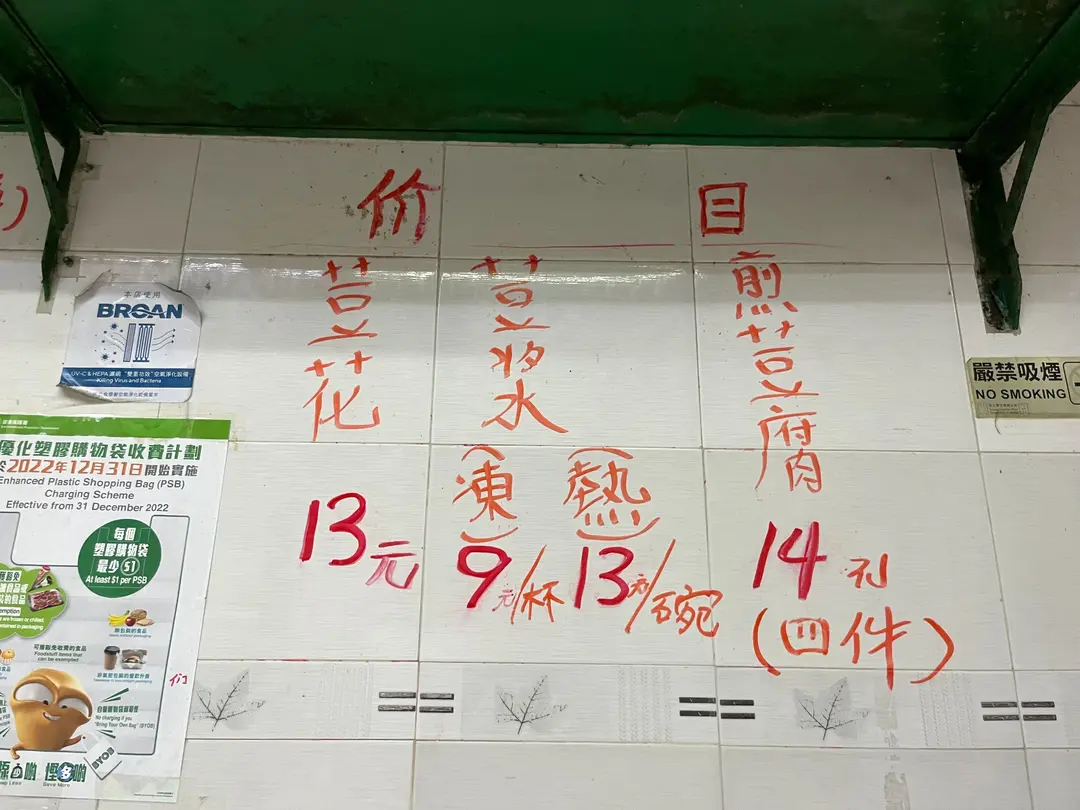 价目
荳花
13元
荳漿
(凍)
9元/杯
(熱)
13元/碗
煎荳腐
14元
(四件)
本店使用
BROAN
UV-C & HEPA 濾網 "雙重功效" 空氣淨化設備
Killing Virus and Bacteria
嚴禁吸煙
NO SMOKING
優化塑膠購物袋收費計劃
於2022年12月31日開始實施
Enhanced Plastic Shopping Bag (PSB)
Charging Scheme
Effective from 31 December 2022
每個
塑膠購物袋
最少 $1
At least $1 per PSB
可獲豁免收費的食品
Foodstuff items that
can be exempted
自備購物袋
No charging if you
"Bring Your Own Bag" (BYOB)
BYOB
Save More